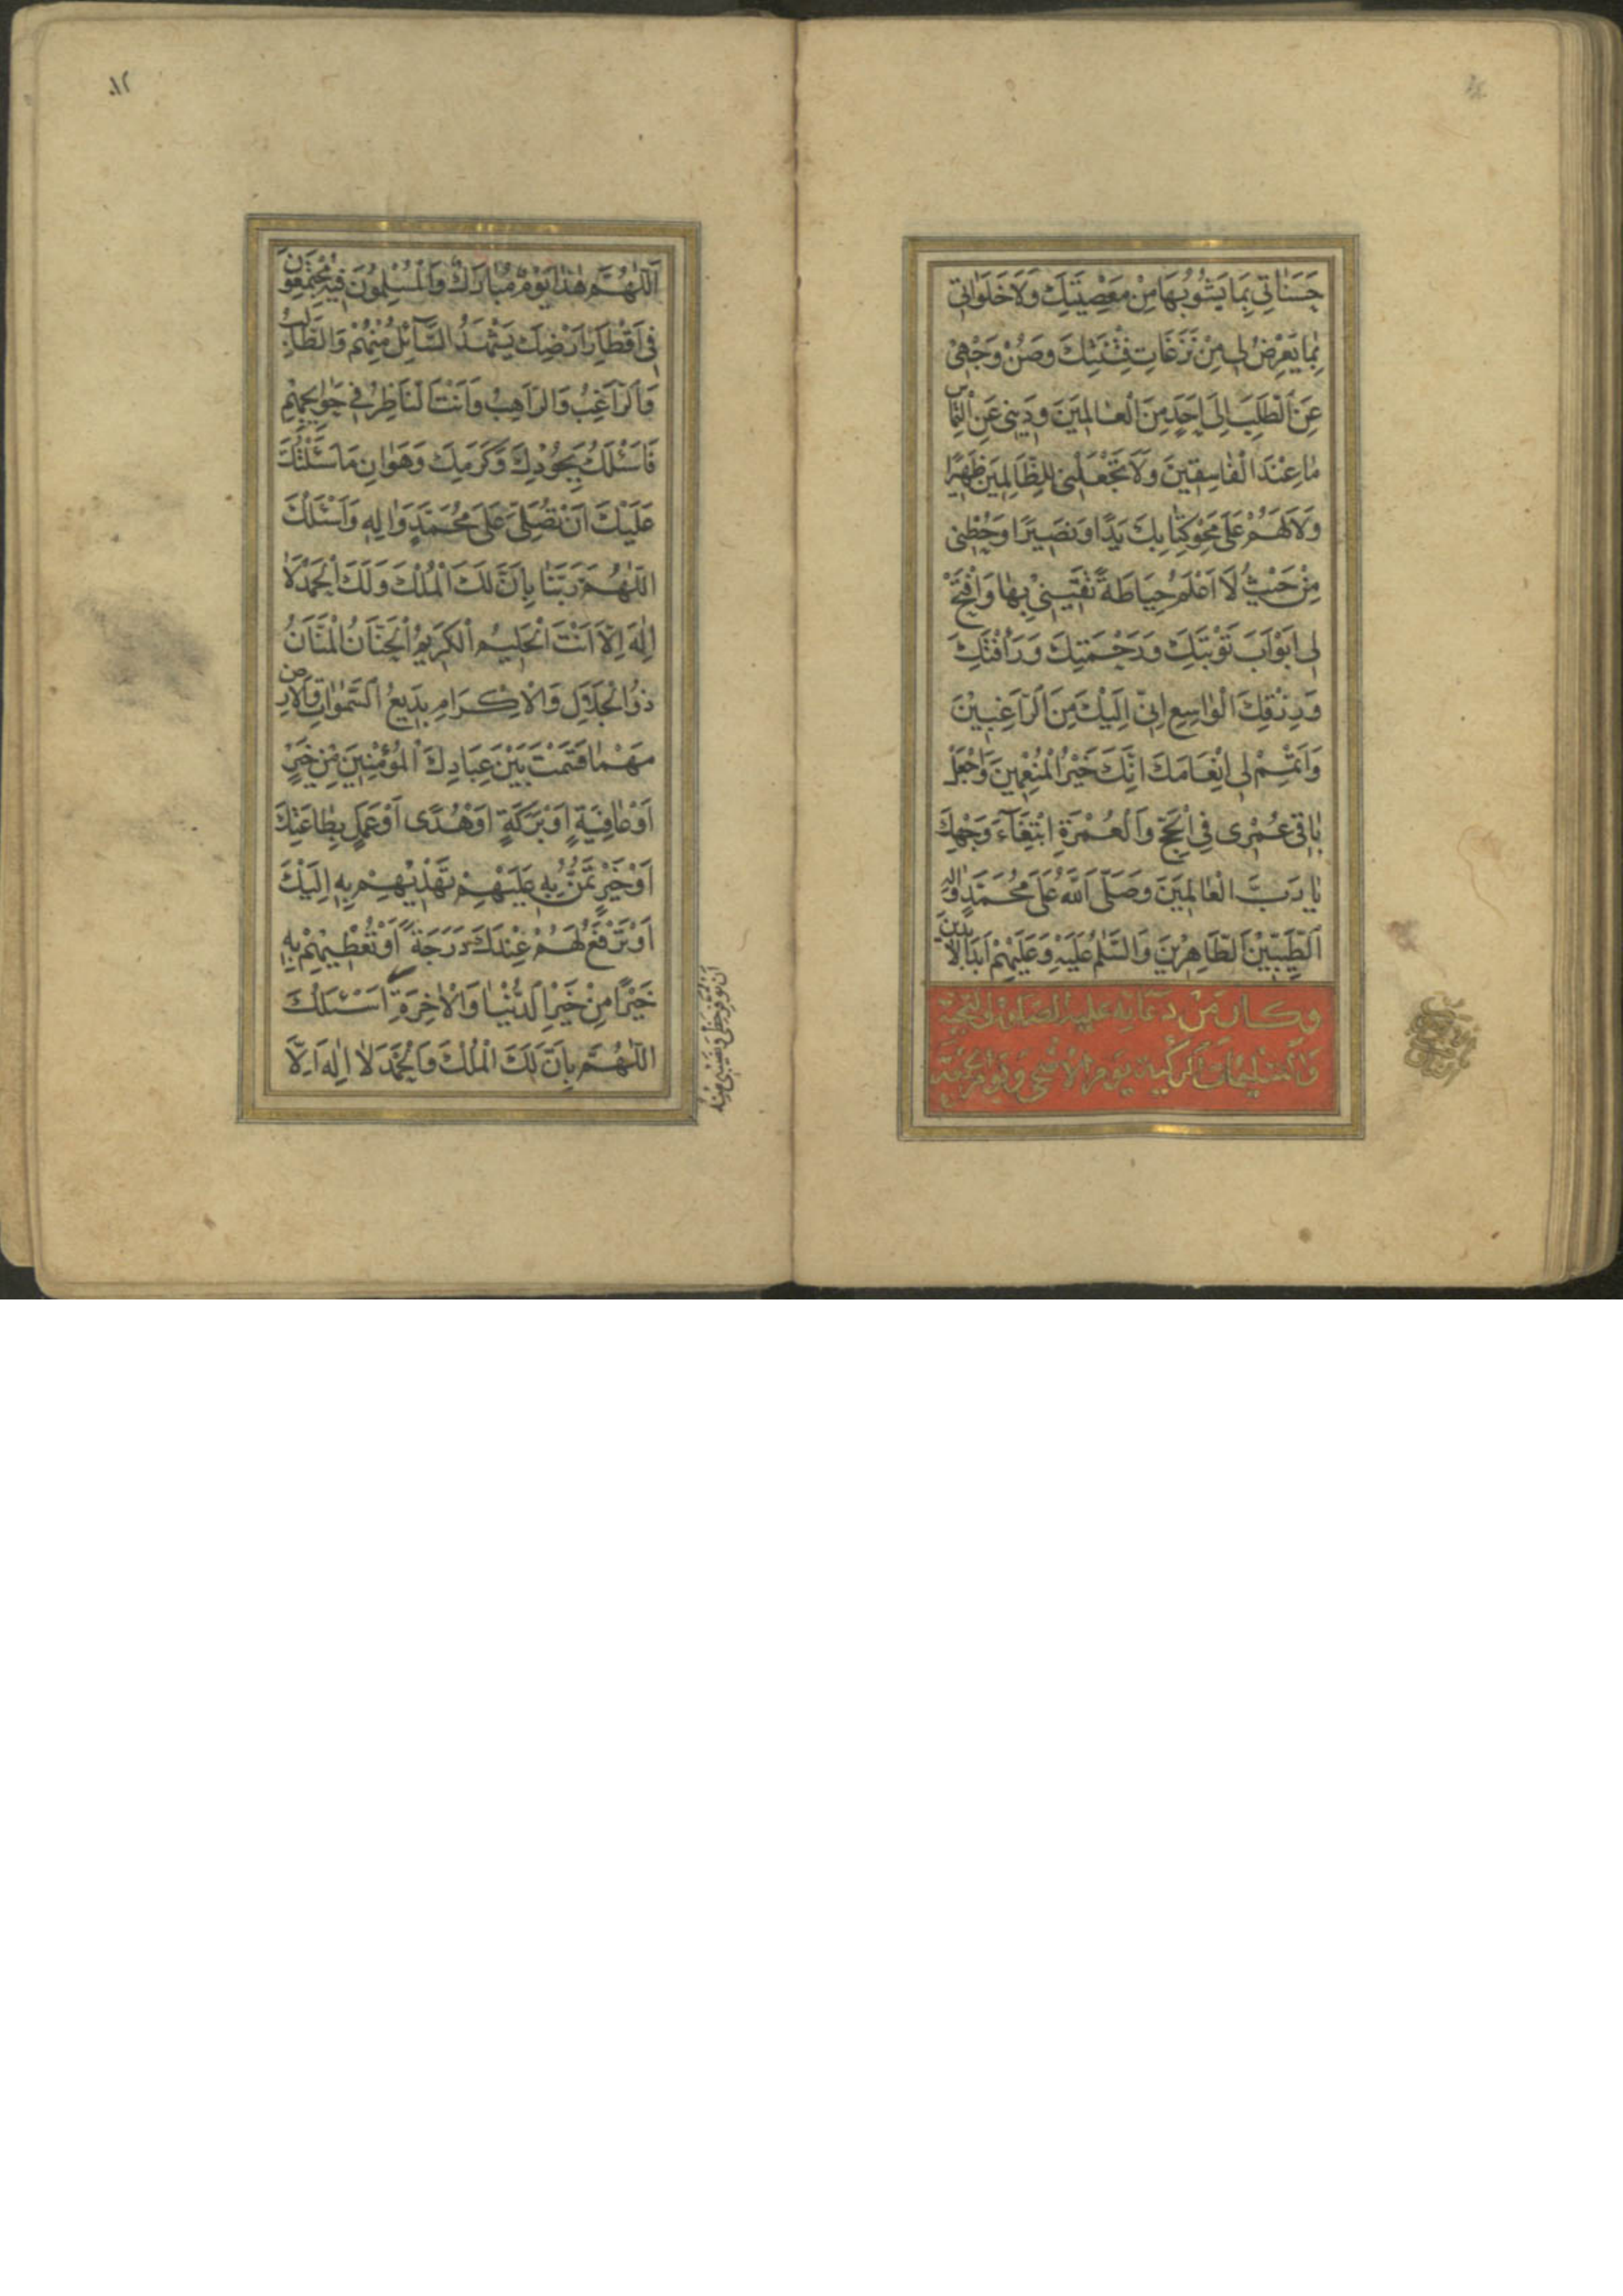 حَسَنَاتِي بِمَا يَشُوبُهَا مِنْ مَعْصِيَتِكَ وَلَا خَلَوَاتِي
بِمَا يَعْرِضُ لِي مِنْ نَزَغَاتِ فِتْنَتِكَ وَصُنْ وَجْهِي
عَنِ الطَّلَبِ اِلَى اَحَدٍ مِنَ الْعَالَمِينَ وَدِينِي عَنِ الْتِمَاسِ
مَا عِنْدَ الْفَاسِقِينَ وَلَا تَجْعَلْنِي لِلظَّالِمِينَ ظَهِيرًا
وَلَا لَهُمْ عَلَى مَحْوِ كِتَابِكَ يَدًا وَنَصِيرًا وَحُطْنِي
مِنْ حَيْثُ لَا اَعْلَمُ حِيَاطَةً تَقِينِي بِهَا وَافْتَحْ
لِي اَبْوَابَ تَوْبَتِكَ وَرَحْمَتِكَ وَرَأْفَتِكَ
وَرِزْقِكَ الْوَاسِعِ اِنِّي اِلَيْكَ مِنَ الرَّاغِبِينَ
وَاَتْمِمْ لِي اِنْعَامَكَ اِنَّكَ خَيْرُ الْمُنْعِمِينَ وَاجْعَلْ
بَاقِيَ عُمْرِي فِي الْحَجِّ وَالْعُمْرَةِ ابْتِغَاءَ وَجْهِكَ
يَا رَبَّ الْعَالَمِينَ وَصَلَّى اللّٰهُ عَلَى مُحَمَّدٍ وَاٰلِهِ
الطَّيِّبِينَ الطَّاهِرِينَ وَالسَّلٰمُ عَلَيْهِ وَعَلَيْهِمْ اَبَدَ الْاٰبِدِينَ
وكان من دعائه عليه الصلوة والتحية
والتسليمات الزكية يوم الاضحى ويوم الجمعة
اَللّٰهُمَّ هٰذَا يَوْمٌ مُبَارَكٌ وَالْمُسْلِمُونَ فِيهِ مُجْتَمِعُونَ
فِي اَقْطَارِ اَرْضِكَ يَشْهَدُ السَّائِلُ مِنْهُمْ وَالطَّالِبُ
وَالرَّاغِبُ وَالرَّاهِبُ وَاَنْتَ النَّاظِرُ فِي حَوَائِجِهِمْ
فَاَسْئَلُكَ بِجُودِكَ وَكَرَمِكَ وَهَوَانِ مَا سَئَلْتُكَ
عَلَيْكَ اَنْ تُصَلِّيَ عَلَى مُحَمَّدٍ وَاٰلِهِ وَاَسْئَلُكَ
اللّٰهُمَّ رَبَّنَا بِاَنَّ لَكَ الْمُلْكَ وَلَكَ الْحَمْدَ لَا
اِلٰهَ اِلَّا اَنْتَ الْحَلِيمُ الْكَرِيمُ الْحَنَّانُ الْمَنَّانُ
ذُو الْجَلَالِ وَالْاِكْرَامِ بَدِيعُ السَّمٰوَاتِ وَالْاَرْضِ
مَهْمَا قَسَمْتَ بَيْنَ عِبَادِكَ الْمُؤْمِنِينَ مِنْ خَيْرٍ
اَوْ عَافِيَةٍ اَوْ بَرَكَةٍ اَوْ هُدًى اَوْ عَمَلٍ بِطَاعَتِكَ
اَوْ خَيْرٍ تَمُنُّ بِهِ عَلَيْهِمْ تَهْدِيهِمْ بِهِ اِلَيْكَ
اَوْ تَرْفَعُ لَهُمْ عِنْدَكَ دَرَجَةً اَوْ تُعْطِيهِمْ بِهِ
خَيْرًا مِنْ خَيْرِ الدُّنْيَا وَالْاٰخِرَةِ اَسْئَلُكَ
اللّٰهُمَّ بِاَنَّ لَكَ الْمُلْكَ وَالْحَمْدَ لَا اِلٰهَ اِلَّا
ان توفر حظي ونصيبي منه
١٢